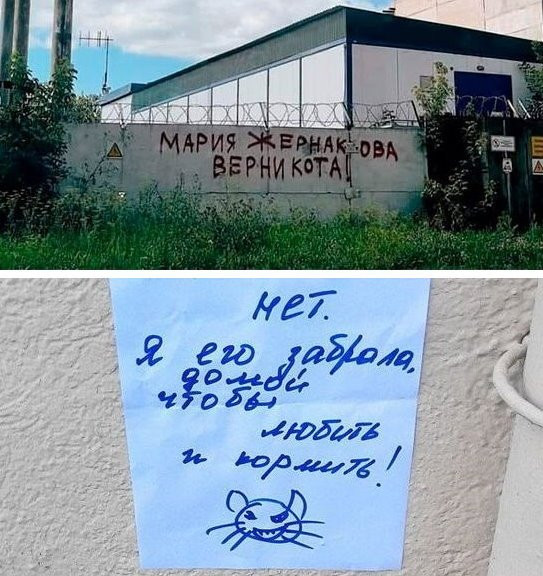 МАРИЯ ЖЕРНАКОВА
ВЕРНИ КОТА!
НЕТ.
Я его забрала,
домой
чтобы
любить
и кормить!